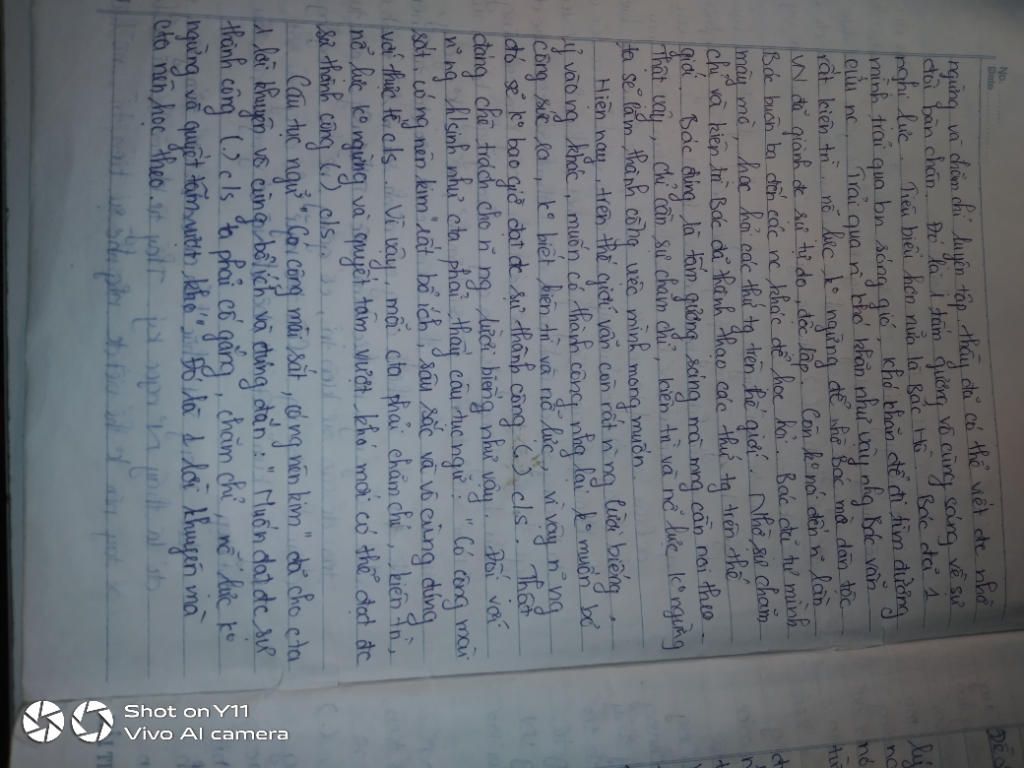 No.
Date
ngừng và chăm chỉ luyện tập thầy đã có thể viết đc nhờ
đôi bàn chân. Đó là 1 tấm gương vô cùng sáng về sự
nghị lực. Tiêu biểu hơn nữa là Bác Hồ. Bác đã 1
mình trải qua bn sóng gió, khó khăn để đi tìm đường
cứu nc. Trải qua n~ khó khăn như vậy nhg Bác vẫn
rất kiên trì, nỗ lực k° ngừng để nhờ bác mà dân tộc
VN đã giành đc sự tự do, độc lập. Còn k° nói đến n~ lần
Bác buôn ba đến các nc khác để học hỏi. Bác đã tự mình
mày mò, học hỏi các thứ ta trên thế giới. Nhờ sự chăm
chỉ và kiên trì Bác đã thành thạo các thứ ta trên thế
giới. Bác đúng là tấm gương sáng mà mng cần noi theo.
Thật vậy, chỉ cần sự chăm chỉ, kiên trì và nỗ lực k° ngừng
ta sẽ làm thành công việc mình mong muốn.
Hiện nay, trên thế giới vẫn còn rất n~ ng lười biếng,
ỷ vào ng khác, muốn có thành công nhg lại k° muốn bỏ
công sức ra, k° biết kiên trì và nỗ lực, vì vậy n~ ng
đó sẽ k° bao giờ đạt đc sự thành công (.) c/s. Thật
đáng chê trách cho n~ ng lười biếng như vậy. Đối với
n~ ng h/sinh như cta phải thấy câu tục ngữ: "Có công mài
sắt, có ng nên kim" rất bổ ích, sâu sắc và vô cùng đúng
với thực tế c/s. Vì vậy, mỗi cta phải chăm chỉ, kiên trì,
nỗ lực k° ngừng và quyết tâm vượt khó mới có thể đạt đc
sự thành công (.) c/s.
Câu tục ngữ "Có công mài sắt, có ng nên kim" đã cho cta
1 lời khuyên vô cùng bổ ích và đúng đắn: "Muốn đạt đc sự
thành công (.) c/s ta phải cố gắng, chăm chỉ, nỗ lực k°
ngừng và quyết tâm vượt khó". Đó là 1 lời khuyên mà
cta nên học theo.
Shot on Y11
Vivo AI camera